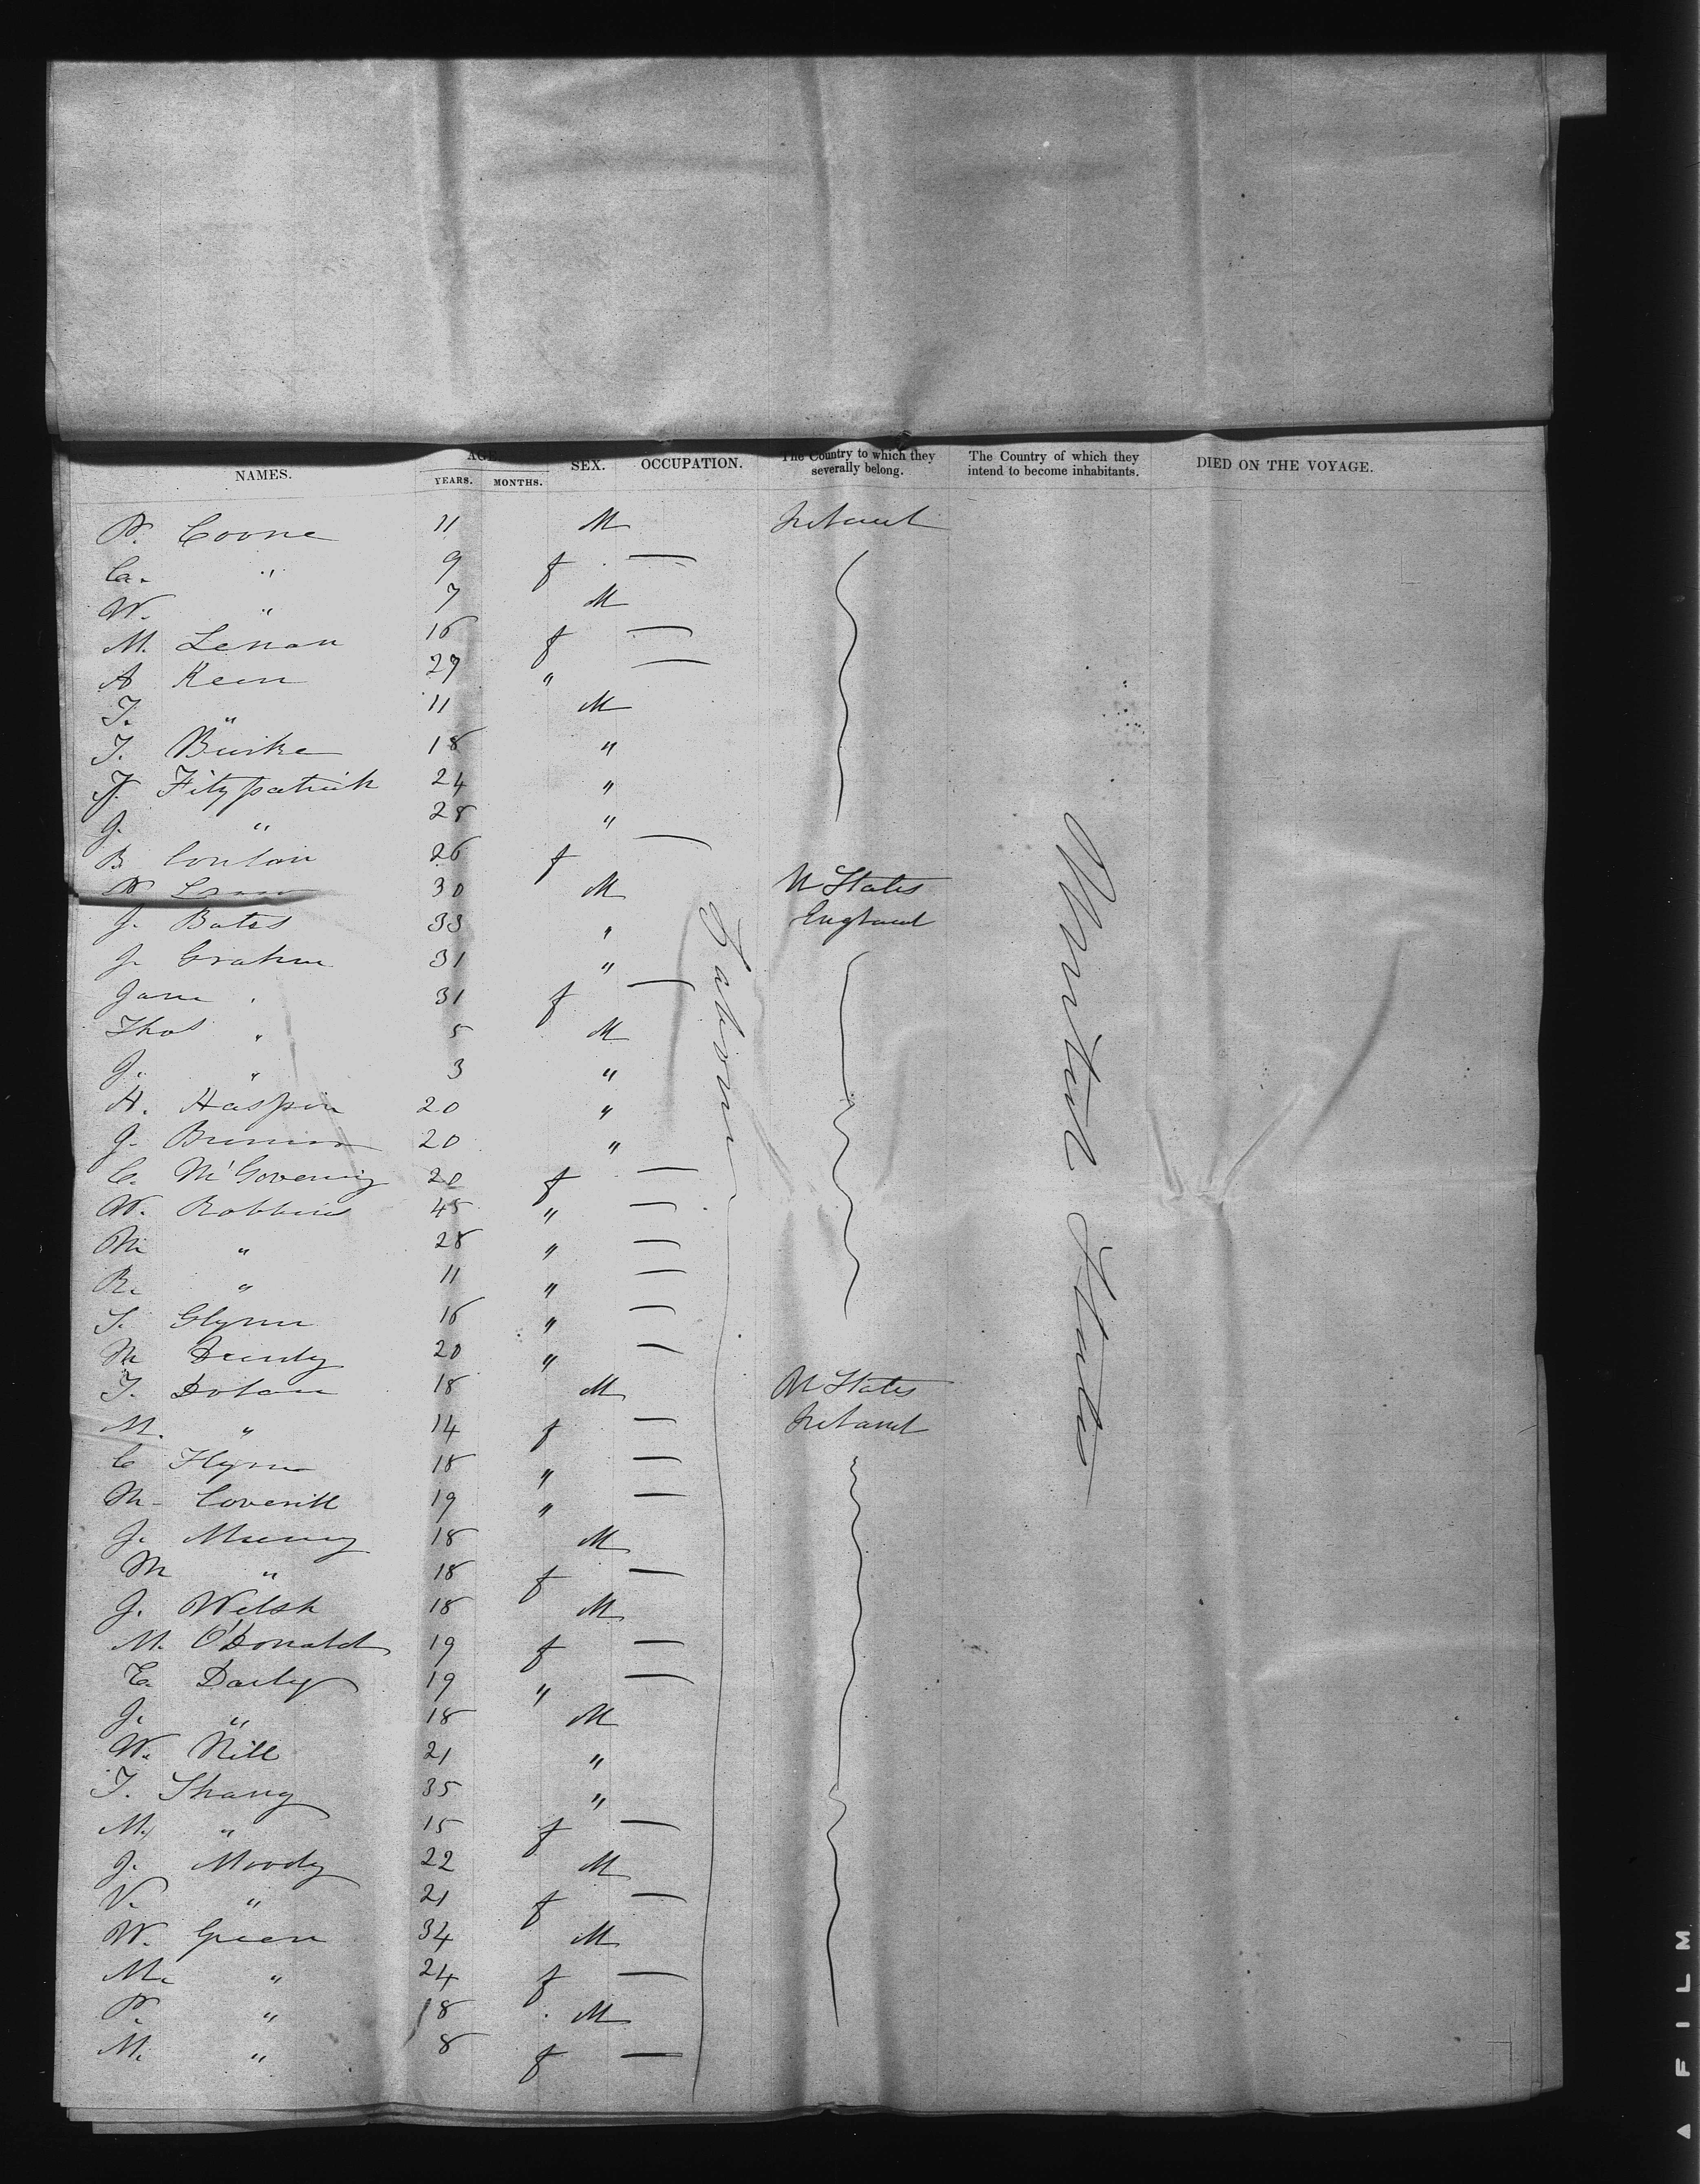 NAMES. AGE. SEX. OCCUPATION. The Country to which they severally belong. The Country of which they intend to become inhabitants. DIED ON THE VOYAGE.
YEARS. MONTHS.
P. Coone 11 M Ireland
Ca. " 9 f —
W. " 7 M
M. Lenan 16 f —
A Keen 29 " —
T. " 11 M
T. Burke 18 "
J. Fitzpatrick 24 "
J. " 28 "
B Conlan 26 f —
P 30 M U States
J. Bates 33 " England
J. Graham 31 "
Jane " 31 f —
Thos " 5 M
J. " 3 "
H. Haspin 20 "
J. 20 "
C. McGoverny 20 f —
W. Robbins 45 " —
M " 28 " —
R. " 11 " —
S. Glynn 16 " —
M Dundy 20 " —
T. Dolan 18 M U States
M. " 14 f — Ireland
C Flynn 18 " —
M. Coverill 19 " —
J. Murray 18 M
M " 18 f —
J. Welsh 18 M
M. O'Donald 19 f —
E. Daily 19 " —
J. " 18 M
W. Nill 21 "
T. Shany 35 "
M. " 15 f —
J. Moody 22 M
V. " 21 f —
W. Green 34 M
M. " 24 f —
P. " 18 M
M. " 8 f —
Laborers
United States
FILM